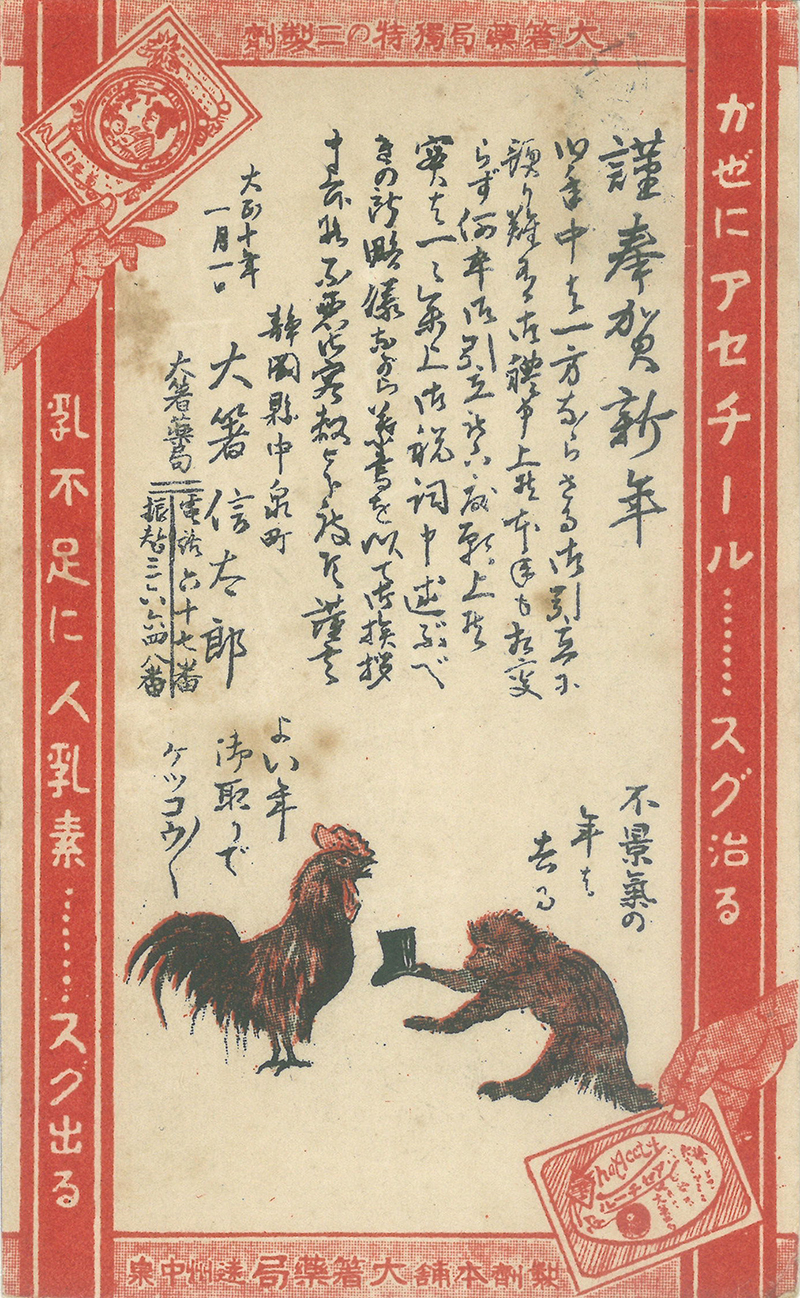 大箸藥局獨特の二製劑
かぜにアセチール………スグ治る
謹奉賀新年
旧年中は一方ならざる御引立に
預り難有御禮申上候本年も相変
らず何卒御引立被下度願上候
実は一々参上御祝詞申述ぶべ
きの所略儀ながら葉書を以て御挨拶
申上候
謹言
大正十年
一月一日
静岡縣中泉町
大箸信太郎
大箸藥局
電話六十七番
振替
乳不足に人乳素………スグ出る
不景氣の
年は
去る
よい年
御取りで
ケツコウ〱
製劑本舗大箸藥局遠州中泉